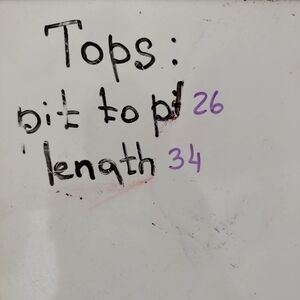 Tops:
pit to pt 26
length 34